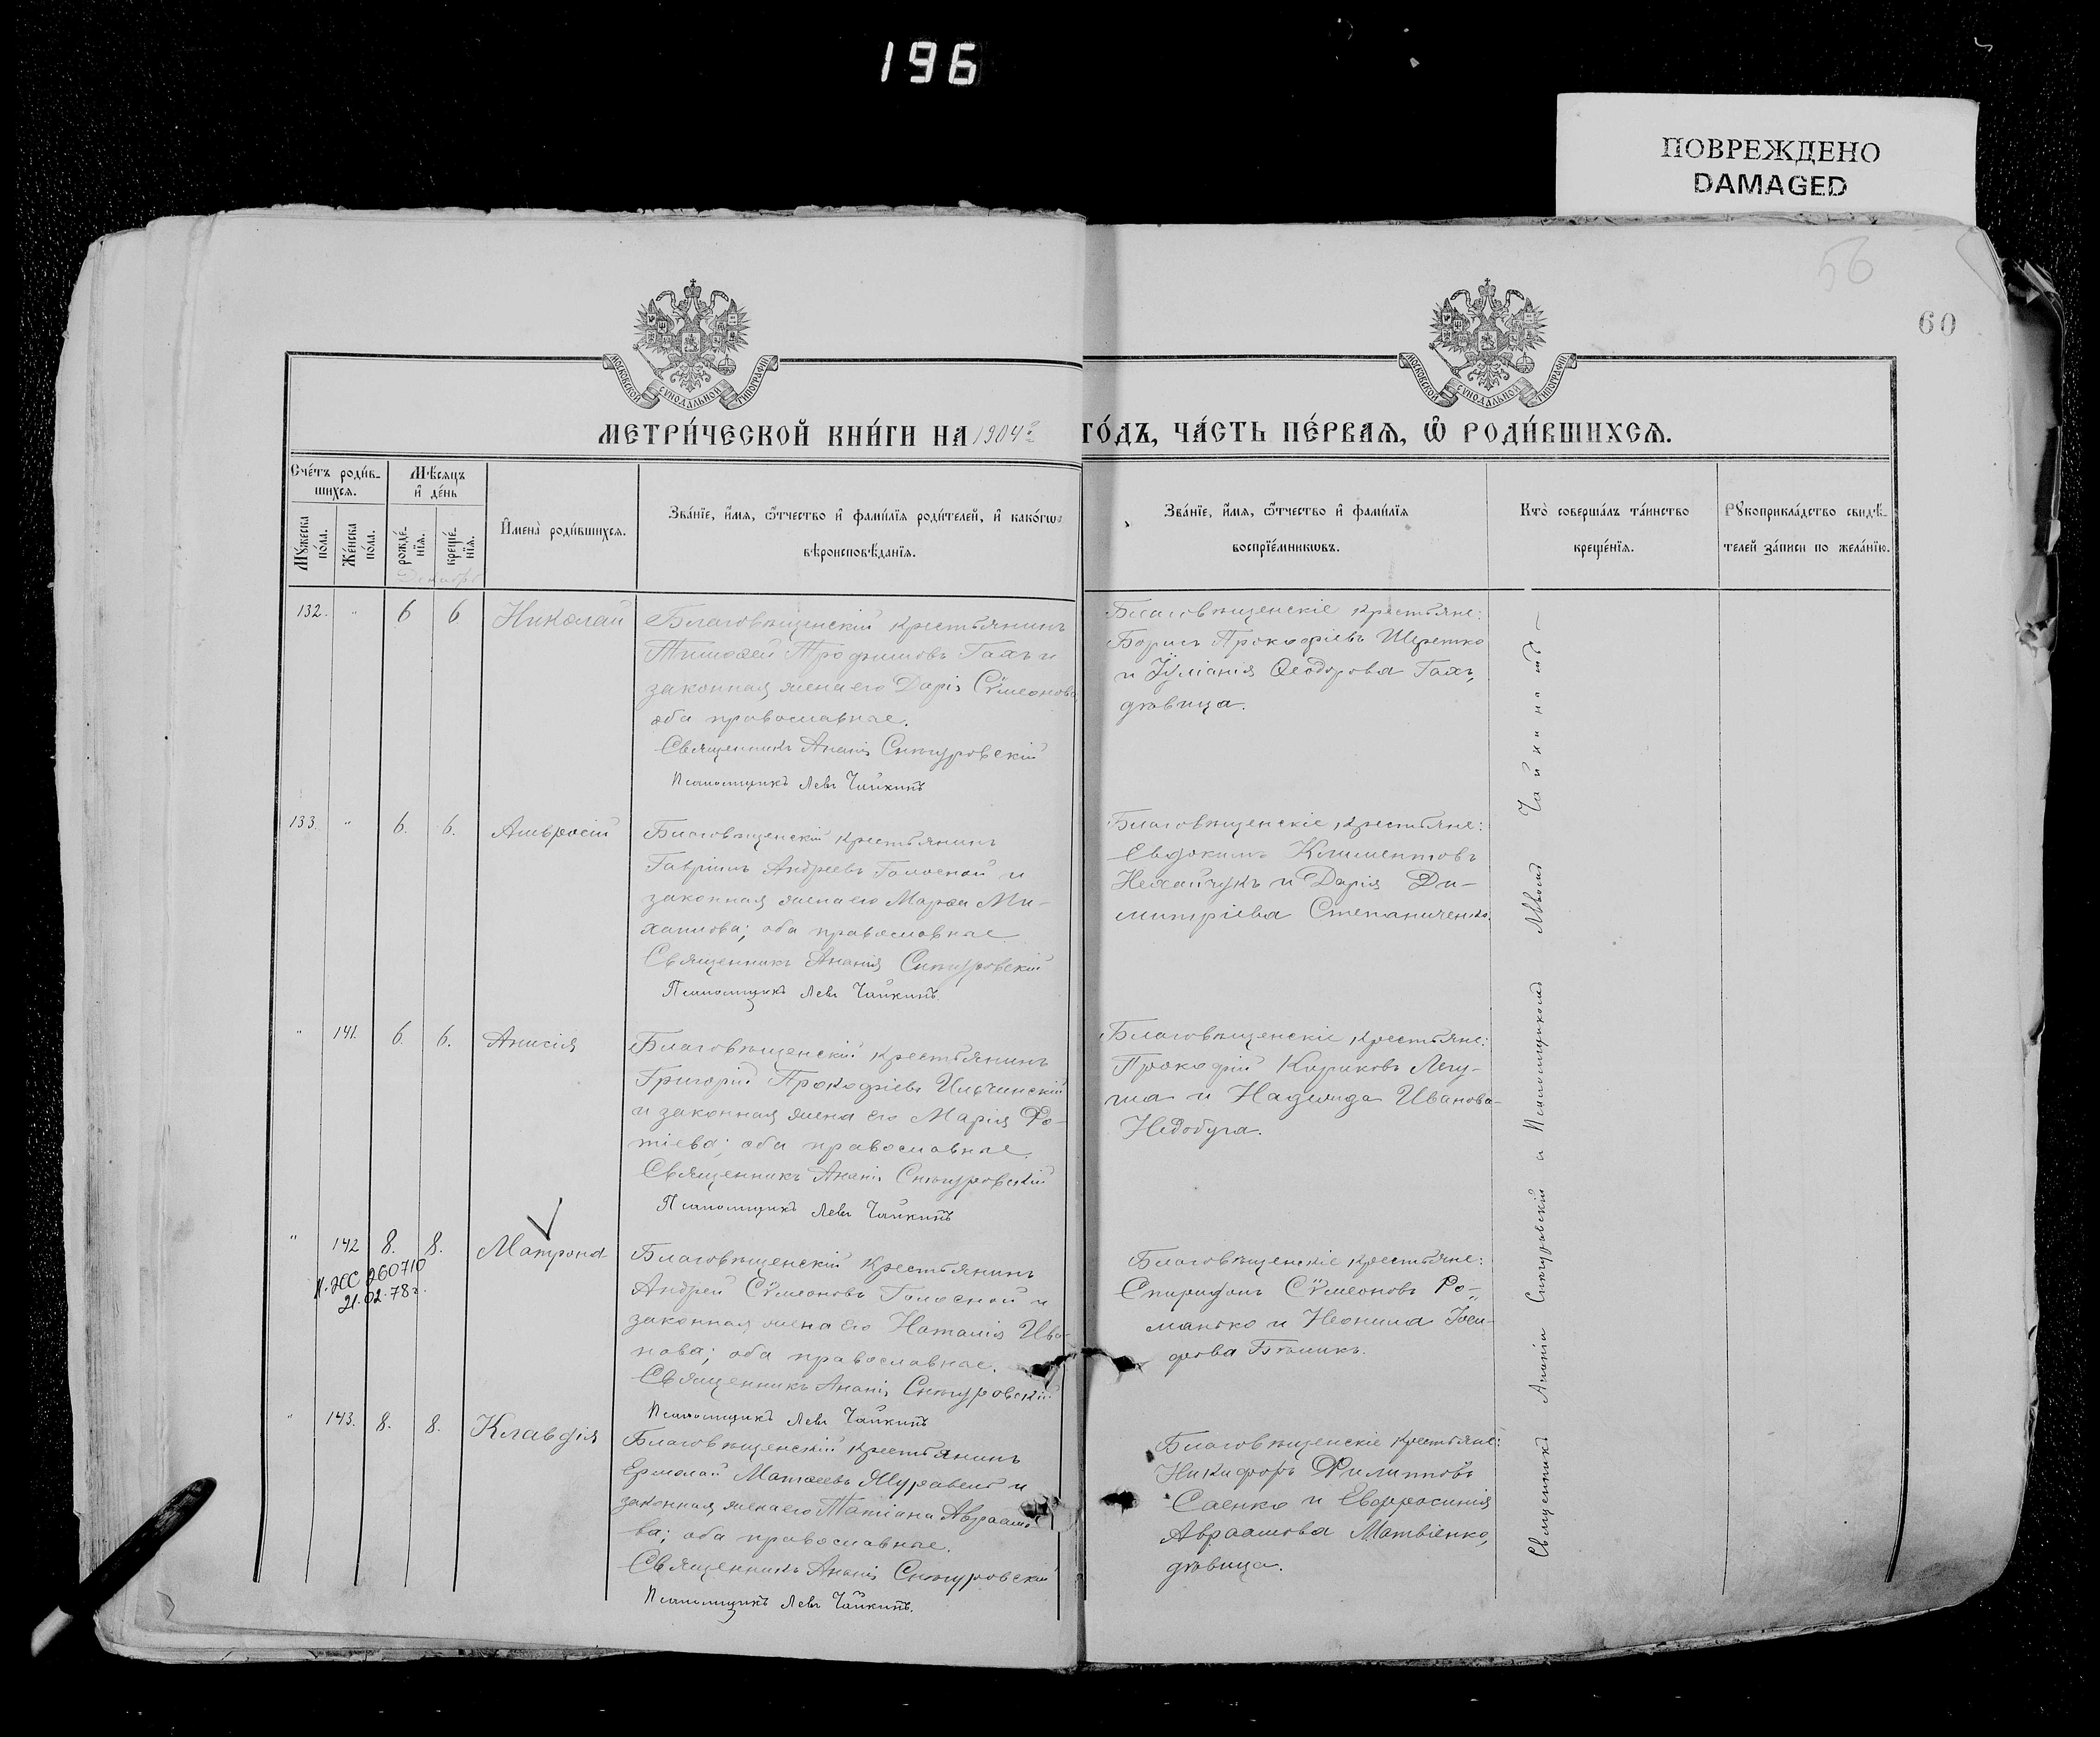 196
ПОВРЕЖДЕНО
DAMAGED
56
60
МОСКОВСКОЙ СѴНОДАЛЬНОЙ ТИПОГРАФІИ
МОСКОВСКОЙ СѴНОДАЛЬНОЙ ТИПОГРАФІИ
МЕТРИ́ЧЕСКОЙ КНИ́ГИ НА 1904 г. ГО́ДЪ, ЧА́СТЬ ПЕ́РВАѦ, Ѽ РОДИ́ВШИХСѦ.
Сче́тъ роди́в-
шихсѧ.
Мѣ́сѧцъ
и҆ де́нь
Мꙋ́жеска
по́ла.
Же́нска
по́ла.
рожде́-
нїѧ.
креще́-
нїѧ.
И҆мена̀ роди́вшихсѧ.
Зва́нїе, и҆́мѧ, ѻ҆́тчество и҆ фами́лїѧ роди́телей, и҆ како́гѡ
вѣроисповѣ́данїѧ.
Зва́нїе, и҆́мѧ, ѻ҆́тчество и҆ фами́лїѧ
воспрїе́мникѡвъ.
Кто̀ соверша́лъ та́инство
креще́нїѧ.
Рꙋкоприкла́дство свидѣ́-
телей за́писи по жела́нїю.
Декабрь
132. " 6 6 Николай
Благовѣщенскій крестьянинъ
Тимоѳей Трофимовъ Гахъ и
законная жена его Дарія Сѵмеонова
оба православные.
Священникъ Ананія Снѣгуровскій
Псаломщикъ Левъ Чайкинъ
Благовѣщенскіе крестьяне:
Борисъ Прокофіевъ Шеретко
и Іуліанія Ѳеодорова Гахъ,
дѣвица.
133. " 6. 6. Амвросій
Благовѣщенскій крестьянинъ
Гавріилъ Андреевъ Голосной и
законная жена его Марѳа Ми-
хаилова; оба православные
Священникъ Ананія Снѣгуровскій
Псаломщикъ Левъ Чайкинъ.
Благовѣщенскіе крестьяне:
Евдокимъ Климентовъ
Нехайчукъ и Дарія Ди-
митріева Степаниченко
" 141. 6. 6. Анисія
Благовѣщенскій крестьянинъ
Григорій Прокофіевъ Ильчинскій
и законная жена его Марія Фо-
тіева; оба православные.
Священникъ Ананія Снѣгуровскій
Псаломщикъ Левъ Чайкинъ
Благовѣщенскіе крестьяне:
Прокофій Кириковъ Легу-
ша и Надежда Иванова
Недобуга.
" 142 8. 8. Матрона
260710
21.02.78г.
Благовѣщенскій крестьянинъ
Андрей Сѵмеоновъ Голосной и
законная жена его Наталія Ива-
нова; оба православные.
Священникъ Ананія Снѣгуровскій
Псаломщикъ Левъ Чайкинъ
Благовѣщенскіе крестьяне:
Спиридонъ Сѵмеоновъ Ро-
манько и Неонила Іоси-
фова Бѣликъ.
" 143. 8. 8. Клавдія
Благовѣщенскій крестьянинъ
Ермолай Матѳеевъ Журавель и
законная жена его Татіана Авраамо
ва; оба православные.
Священникъ Ананія Снѣгуровскій
Псаломщикъ Левъ Чайкинъ.
Благовѣщенскіе крестьяне:
Никифоръ Филипповъ
Саенко и Евфросинія
Авраамова Матвіенко,
дѣвица.
Священникъ Ананія Снѣгуровскій а Псаломщикомъ Львомъ Чайкинамъ